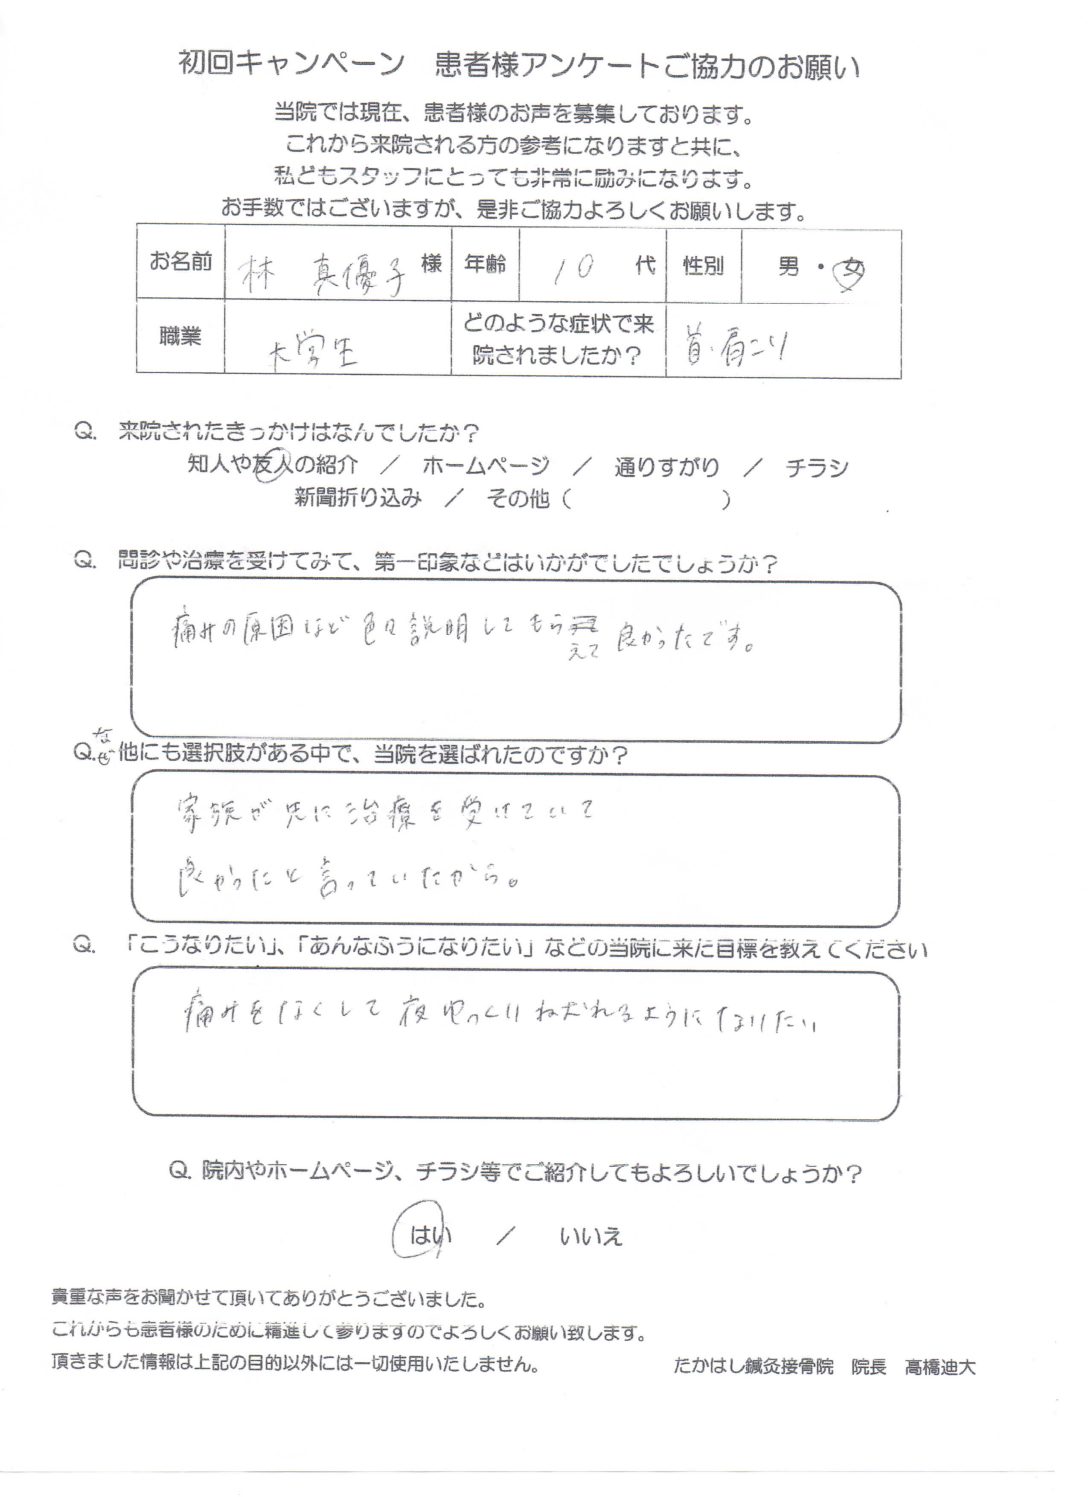 初回キャンペーン 患者様アンケートご協力のお願い
当院では現在、患者様のお声を募集しております。
これから来院される方の参考になりますと共に、
私どもスタッフにとっても非常に励みになります。
お手数ではございますが、是非ご協力よろしくお願いします。
お名前 林 真優子 様 年齢 10 代 性別 男 ・ 女
職業 大学生 どのような症状で来院されましたか? 首・肩こり
Q. 来院されたきっかけはなんでしたか?
知人や友人の紹介 / ホームページ / 通りすがり / チラシ
新聞折り込み / その他( )
Q. 問診や治療を受けてみて、第一印象などはいかがでしたでしょうか?
痛みの原因など色々説明してもらえて良かったです。
Q.なぜ他にも選択肢がある中で、当院を選ばれたのですか?
家族が先に治療を受けていて
良かったと言っていたから。
Q. 「こうなりたい」、「あんなふうになりたい」などの当院に来た目標を教えてください
痛みをなくして夜ゆっくりねむれるようになりたい
Q. 院内やホームページ、チラシ等でご紹介してもよろしいでしょうか?
はい / いいえ
貴重な声をお聞かせて頂いてありがとうございました。
これからも患者様のために精進して参りますのでよろしくお願い致します。
頂きました情報は上記の目的以外には一切使用いたしません。 たかはし鍼灸接骨院 院長 高橋迪大